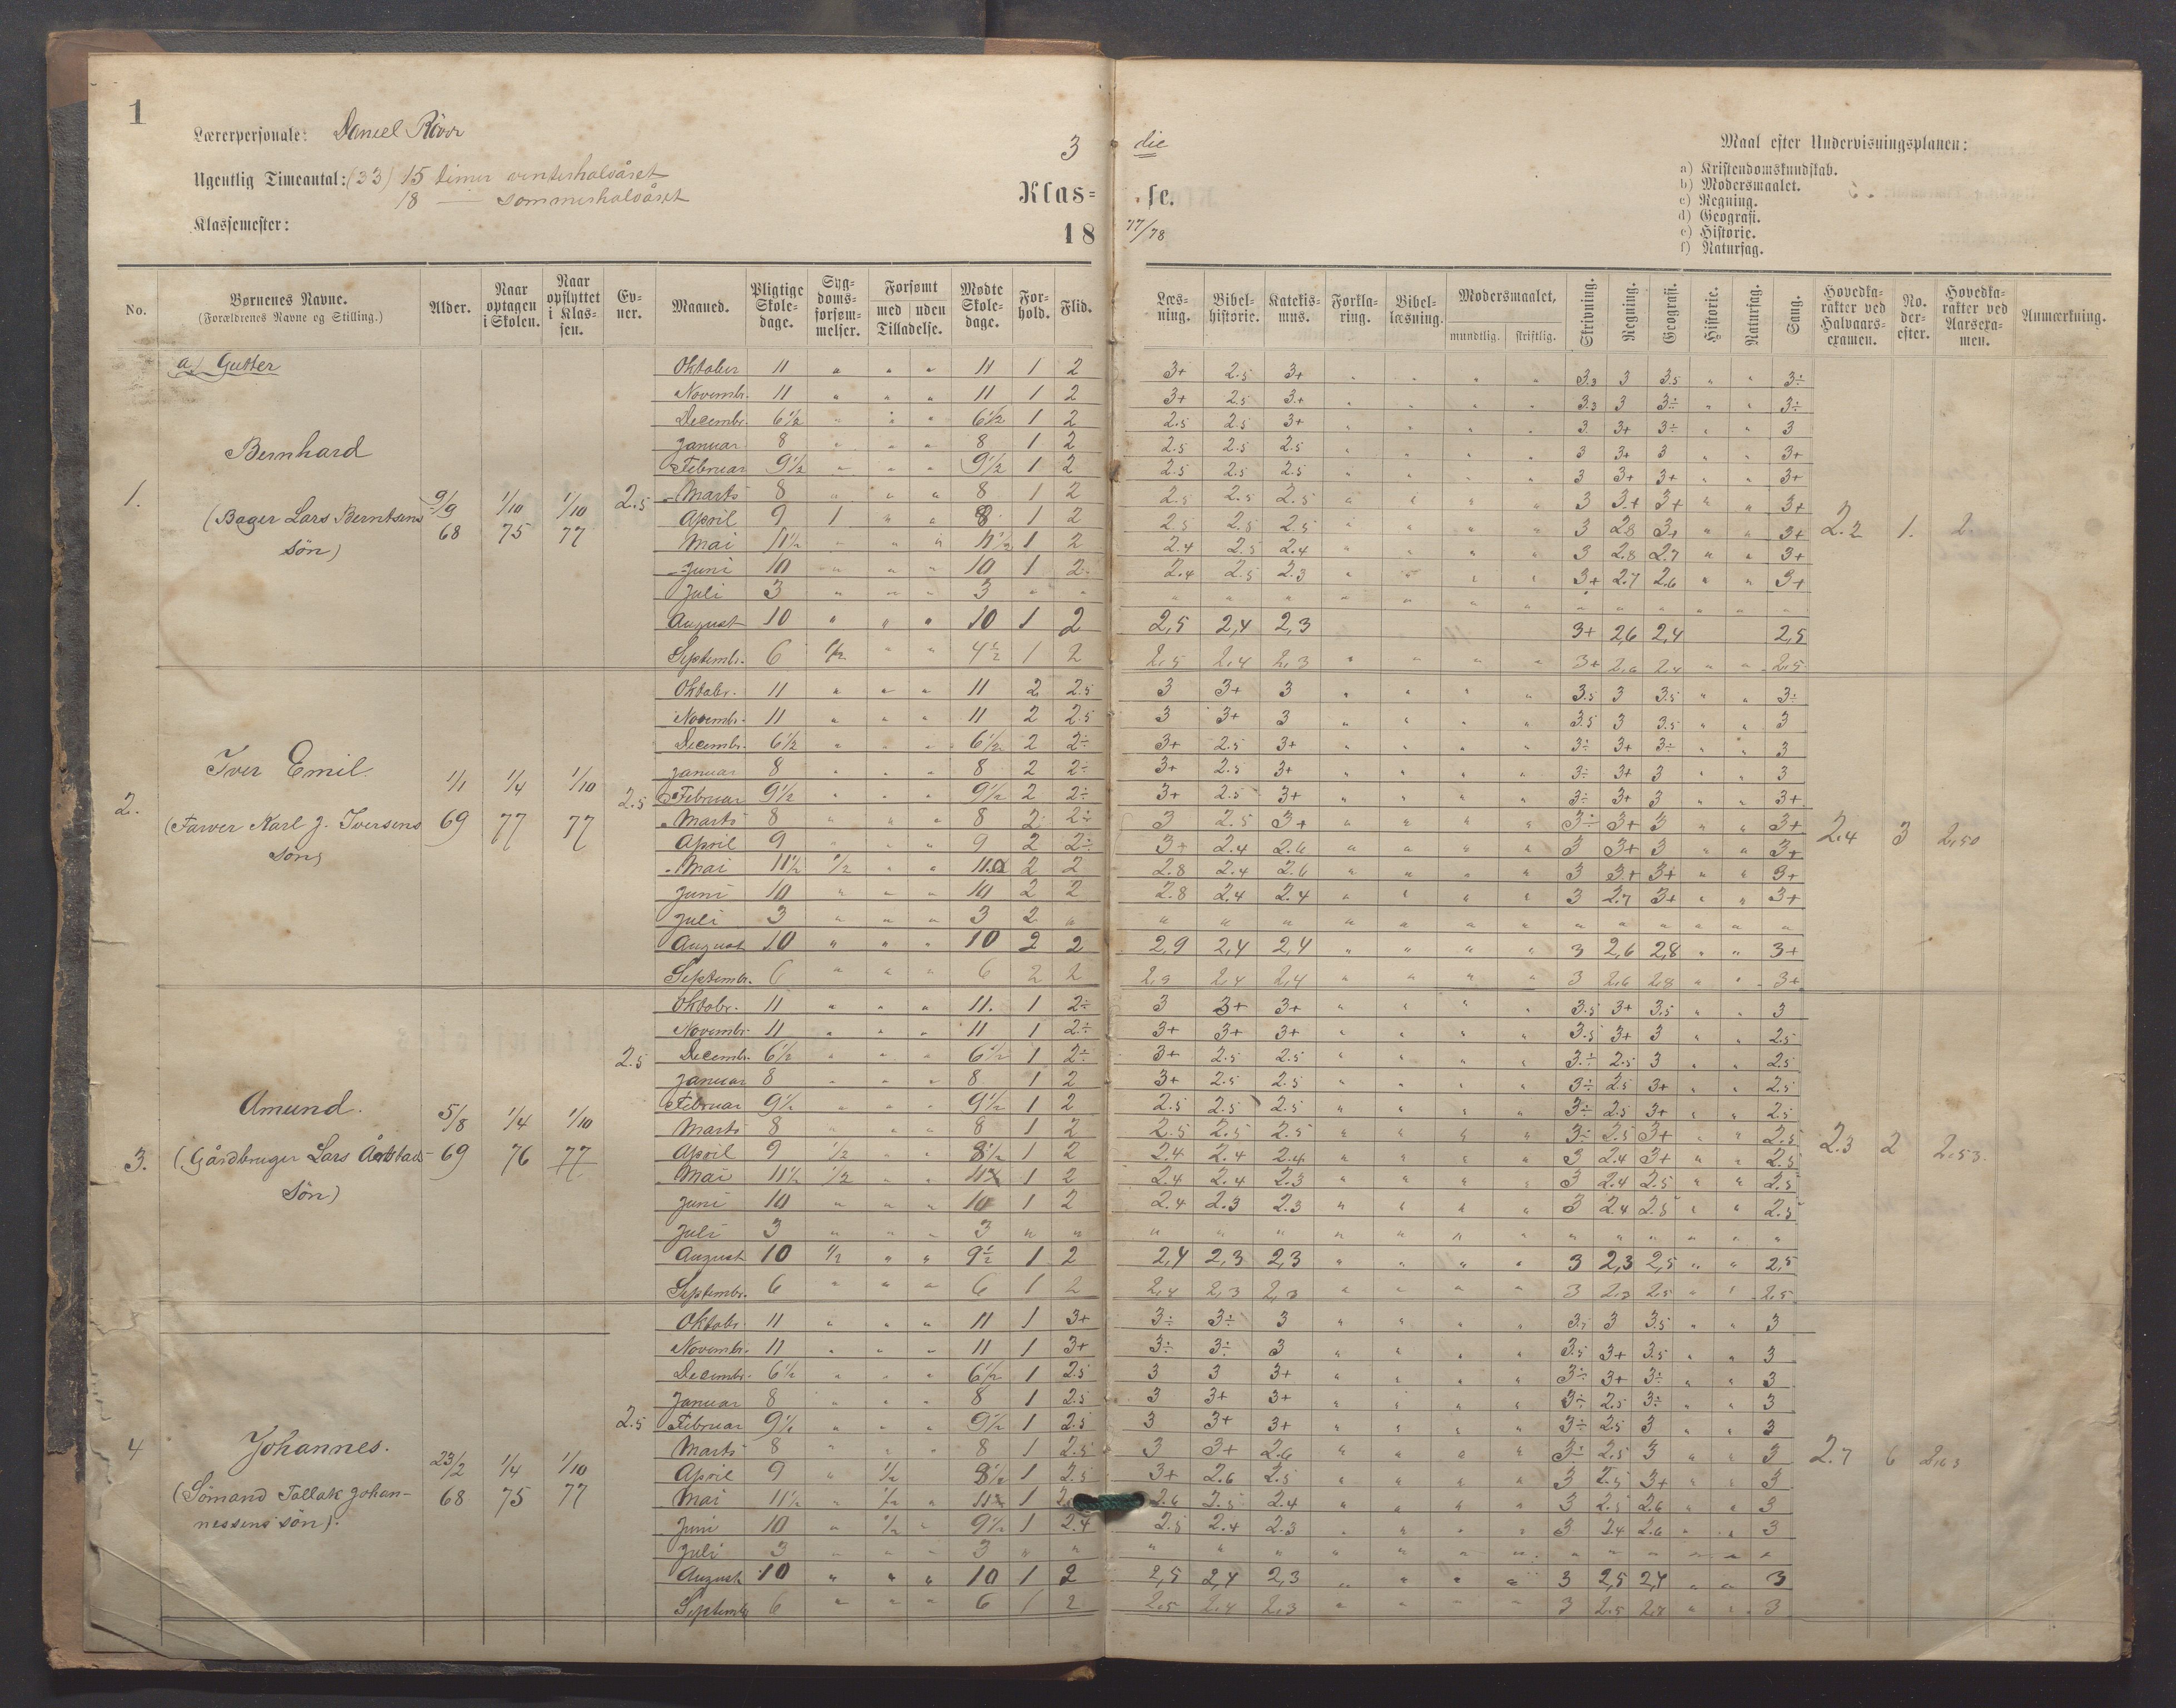 1
Lærerpersonale: Daniel
3 die
Maal efter Undervisningsplanen:
Ugentlig Timeantal: (33) 15 timer vinterhalvåret
18 — sommerhalvåret
Klas= se.
a) Kristendomskundskab.
b) Modersmaalet.
c) Regning.
d) Geografi.
e) Historie.
f) Naturfag.
Klassemester:
18 77/78
No. Børnenes Navne. (Forældrenes Navne og Stilling.) Alder. Naar optagen i Skolen. Naar opflyttet i Klassen. Evner. Maaned. Pligtige Skoledage. Sygdomsforsømmelser. Forsømt med uden Tilladelse. Mødte Skoledage. Forhold. Flid. Læsning. Bibelhistorie. Katekismus. Forklaring. Bibellæsning. Modersmaalet, mundtlig. skriftlig. Skrivning. Regning. Geografi. Historie. Naturfag. Sang. Hovedkarakter ved Halvaarsexamen. No. derefter. Hovedkarakter ved Aarsexamen. Anmærkning.
a) Gutter
1. Bernhard (Bager Lars Berntsens søn) 9/9 68 1/10 75 1/10 77 2.5 2.2 1. 2.
Oktober 11 " " " 11 1 2 3+ 2.5 3+ " " " " 3.3 3 3.5 " " 3÷
Novembr. 11 " " " 11 1 2 3+ 2.5 3+ " " " " 3.3 3 3÷ " " 3÷
Decembr. 6½ " " " 6½ 1 2 2.5 2.5 3+ " " " " 3 3+ 3÷ " " 3
Januar 8 " " " 8 1 2 2.5 2.5 2.5 " " " " 3 3+ 3 " " 3+
Februar 9½ " " " 9½ 1 2 2.5 2.5 2.5 " " " " 3 3+ 3+ " " 3+
Marts 8 " " " 8 1 2 2.5 2.5 2.5 " " " " 3 3+ 3+ " " 3+
April 9 1 " " 8 1 2 2.5 2.5 2.5 " " " " 3 2.8 3+ " " 3+
Mai 11½ " " " 11½ 1 2 2.4 2.5 2.4 " " " " 3 2.8 2.7 " " 3+
Juni 10 " " " 10 1 2 2.4 2.5 2.3 " " " " 3+ 2.7 2.6 " " 3+
Juli 3 " " " 3 " " " " " " " " " " " " " " "
August 10 " " " 10 1 2 2,5 2,4 2,3 3+ 2,6 2,4 2,5
Septembr. 6 " " 4½ 1 2 2,5 2,4 2,3 " " " " 3+ 2,6 2,4 " " 2,5
2. Iver Emil (Farver Karl J. Iversens søn) 1/1 69 1/4 77 1/10 77 2.5 2.4 3 2,50
Oktobr. 11 " " " 11 2 2.5 3 3+ 3 " " " " 3.5 3 3.5 " " 3÷
Novembr. 11 " " " 11 2 2.5 3 3+ 3 " " " " 3.5 3 3.5 " " 3
Decembr. 6½ " " " 6½ 2 2÷ 3+ 2.5 3+ " " " " 3÷ 3+ 3÷ " " 3
Januar 8 " " " 8 2 2÷ 3+ 2.5 3+ " " " " 3÷ 3+ 3 " " 3
Februar 9½ " " " 9½ 2 2÷ 3+ 2.5 3+ " " " " 3÷ 3+ 3 " " 3+
Marts 8 " " " 8 2 2÷ 3 2.5 3+ " " " " 3÷ 3+ 3 " " 3+
April 9 " " " 9 2 2÷ 3+ 2.4 2.6 " " " " 3 3+ 3 " " 3+
Mai 11½ ½ " " 11 2 2 2.8 2.4 2.6 " " " " 3 3+ 3+ " " 3+
Juni 10 " " " 10 2 2 2.8 2.4 2.4 " " " " 3 2.7 3+ " " 3+
Juli 3 " " " 3 2 " " " " " " " " " " " " " "
August 10 " " " 10 2 2 2,9 2,4 2,4 " " " " 3 2,6 2,8 " " 3+
Septembr. 6 " " " 6 2 2 2,9 2,4 2,4 " " " " 3 2,6 2,8 " " 3+
3. Amund. (Gårdbruger Lars søn) 5/8 69 1/4 76 1/10 77 2.5 2.3 2 2.53
Oktobr. 11 " " " 11. 1 2÷ 3 3+ 3+ " " " " 3.5 3+ 3.5 " " 3
Novembr. 11 " " " 11 1 2÷ 3+ 3+ 3+ " " " " 3.5 3+ 3 " " 2.5
Decembr. 6½ " " " 6½ 1 2÷ 3+ 2.5 2.5 " " " " 3÷ 2.5 3 " " 2.5
Januar 8 " " " 8 1 2 3+ 2.5 2.5 " " " " 3÷ 2.5 3+ " " 2.5
Februar 9½ " " " 9½ 1 2 2.5 2.5 2.5 " " " " 3÷ 2.5 3+ " " 2.5
Marts 8 " " " 8 1 2 2.5 2.5 2.5 " " " " 3÷ 2.5 3+ " " 2.5
April 9 ½ " " 8½ 1 2 2.4 2.4 2.4 " " " " 3 2.4 3+ " " 2.5
Mai 11½ ½ " " 11 1 2 2.4 2.4 2.3 " " " " 3 2.4 2.5 " " 2.5
Juni 10 " " " 10 1 2 2.4 2.3 2.3 " " " " 3 2.4 2.5 " " 2.5
Juli 3 " " " 3 " " " " " " " " " " " " " " "
August 10 ½ " " 9½ 1 2 2,4 2,3 2,3 " " " " 3 2,3 2,5 " " 2,5
Septembr. 6 " " " 6 1 2 2,4 2,3 2,3 " " " " 3 2,3 2,5 " " 2,5
4 Johannes. (Sömand Tollak Johannessens søn). 23/2 68 1/4 75 1/10 77 2.5 2.7 6
Oktobr. 11 " " " 11 1 3+ 3÷ 3÷ 3 " " " " 3.5 3 3.5 " " 3
Novembr. 11 " " " 11 1 3+ 3÷ 3÷ 3 " " " " 3.5 3+ 3.5 " " 3
Decembr. 6½ " " " 6½ 1 2.5 3 3 3+ " " " " 3÷ 3+ 3÷ " " 3
Januar 8 " " " 8 1 2.5 3 3+ 3+ " " " " 3÷ 2.5 3÷ " " 3
Februar 9½ " " " 9½ 1 2.5 3 3+ 3+ " " " " 3÷ 2.5 3 " " 3
Marts 8 " " " 8 1 2.5 3 3+ 2.6 " " " " 3÷ 2.5 3 " " 3
April 9 " ½ " 8½ 1 2.5 3+ 2.6 2.5 " " " " 3 2.5 3+ " " 3
Mai 11½ " ½ " 11 1 2.6 2.5 2.4 " " " " 3 2.5 2.6 " " 3
Juni 10 " ½ " 9½ 1 2.4 2.5 2.4 2.3 " " " " 3 2.4 2.6 " " 3
Juli 3 " " " 3 " " " " " " " " " " " " " " "
August 10 " " " 10 1 2 2,5 2,4 2,3 " " " " 3 2,5 2,4 " " 3
Septembr 6 " " " 6 1 2 2.5 2.4 2.3 " " " " 3 2.5 " " 3